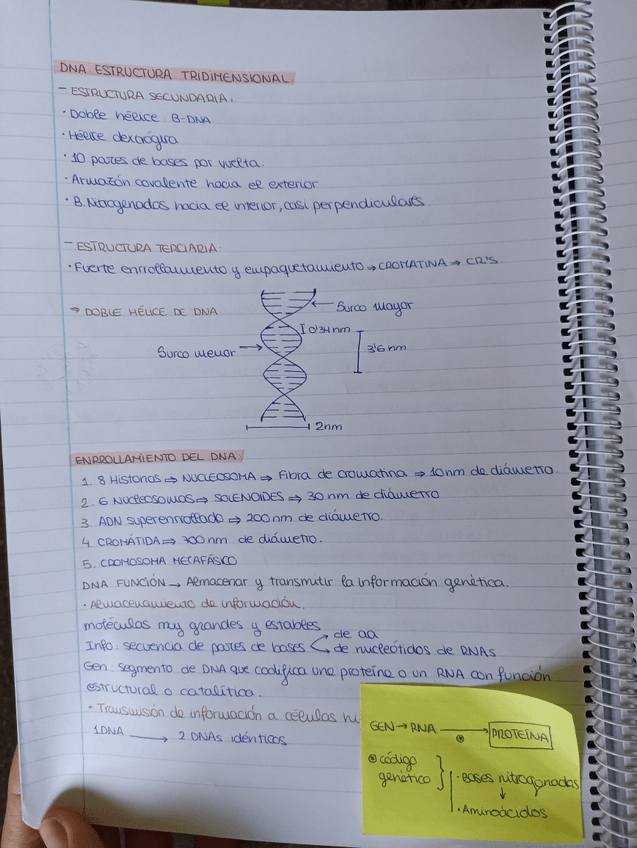 DNA ESTRUCTURA TRIDIMENSIONAL
- ESTRUCTURA SECUNDARIA:
· Doble hélice B-DNA
· Hélice dextrógira
· 10 pares de bases por vuelta.
· Armazón covalente hacia el exterior
· B. Nitrogenadas hacia el interior, casi perpendiculares.
- ESTRUCTURA TERCIARIA:
· Fuerte enrrollamiento y empaquetamiento → CROMATINA → CR'S.
→ DOBLE HÉLICE DE DNA
Surco mayor
0'34nm
Surco menor
3'6 nm
2nm
ENRROLLAMIENTO DEL DNA:
1. 8 Histonas → NUCLEOSOMA → Fibra de cromatina → 10nm de diámetro.
2. 6 Nucleosomas → SOLENOIDES → 30 nm de diámetro
3. ADN superenrrollado → 200 nm de diámetro.
4. CROMÁTIDA → 700 nm de diámetro.
5. CROMOSOMA METAFÁSICO
DNA FUNCIÓN → Almacenar y transmitir la información genética.
· Almacenamiento de información.
moléculas muy grandes y estables
de aa
Info: secuencia de pares de bases
de nucleótidos de RNAs
Gen: segmento de DNA que codifica una proteína o un RNA con función
estructural o catalítica.
· Transmisión de información a células
1DNA → 2 DNAs idénticos
GEN → RNA → PROTEÍNA
código
genético
· Bases nitrogenadas
↓
· Aminoácidos